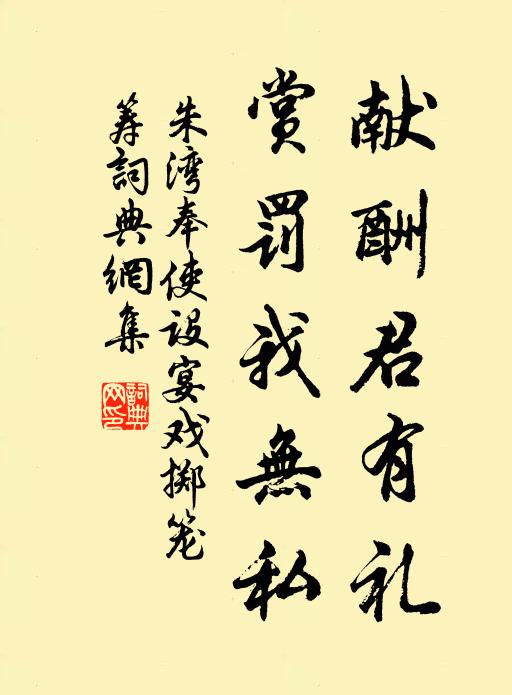 献酬君有礼
赏罚我無私
朱湾奉使设宴戏掷笼
筹詞典網集
詞典
网印